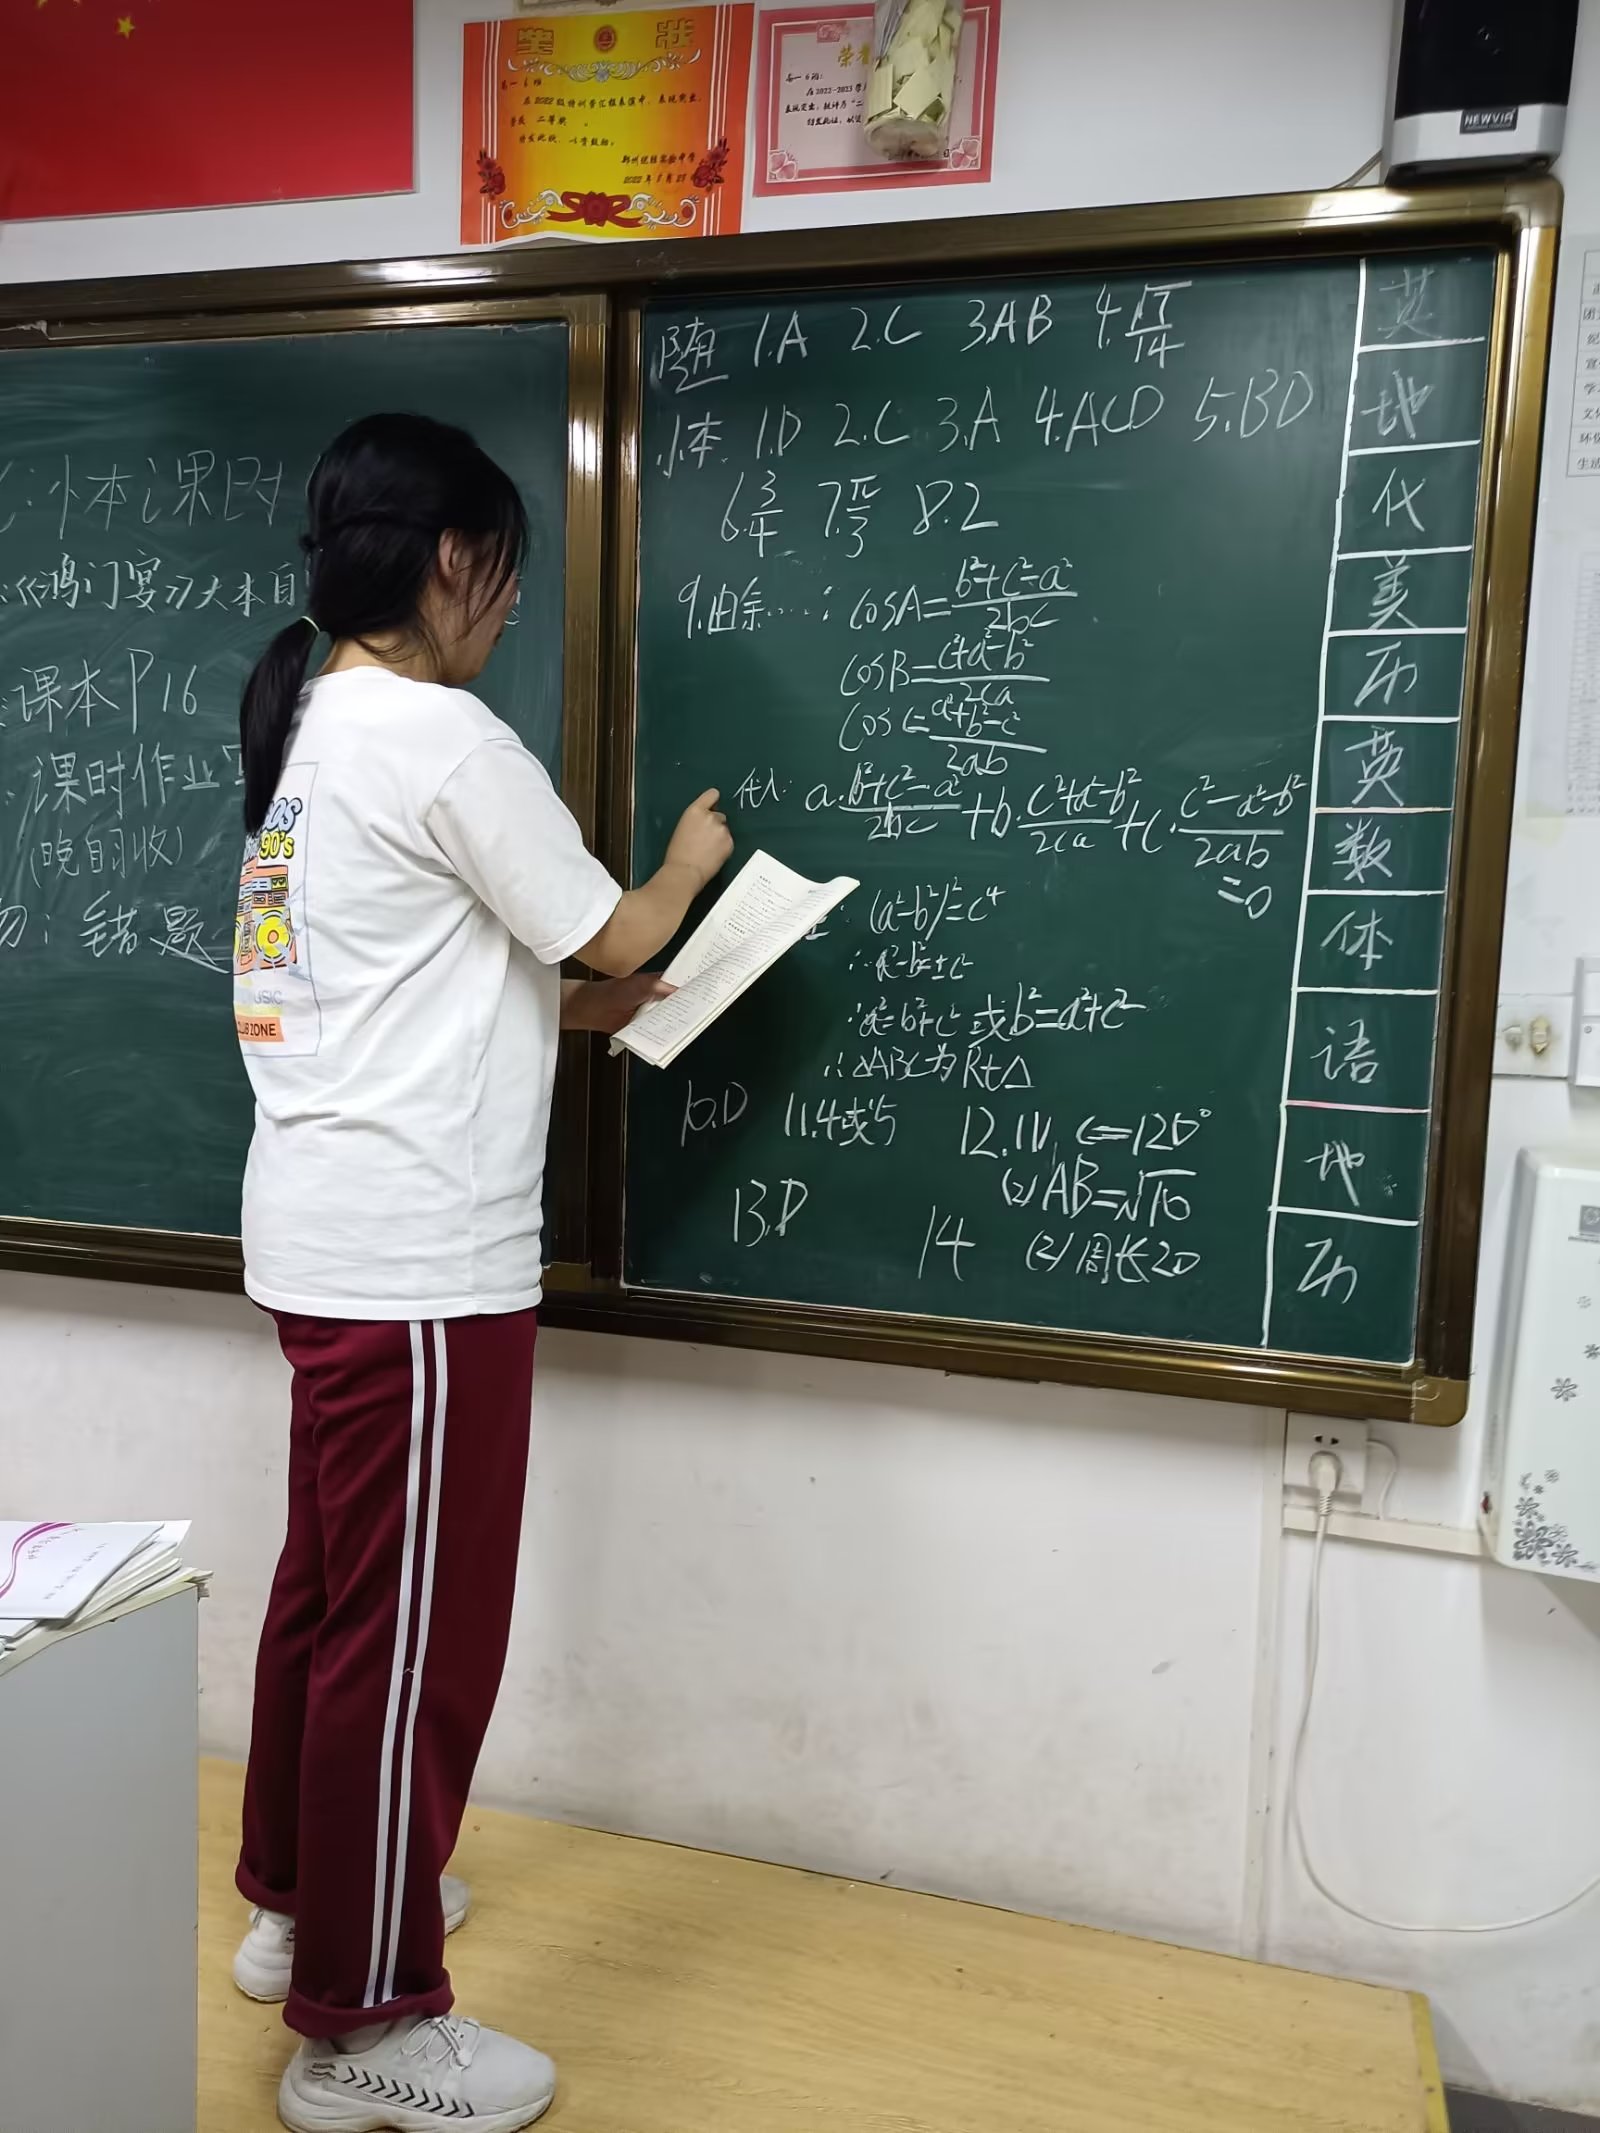 荣 状
高一6班:
在2022级特训营汇报表演中,表现突出,
荣获 二等奖 。
特发此状,以资鼓励。
2022年8月27日
高一6班:
在2022-2023学
NEWVIR
小本课时
《鸿门宴》大本自
课本P16
课时作业
(晚自习收)
错题
90's
USIC
CLUB ZONE
随 1.A 2.C 3.AB 4.√7/14
小本 1.D 2.C 3.A 4.ACD 5.BD
6.3/4 7.π/3 8.2
9.由余……: cosA=b²+c²-a²/2bc
cosB=c²+a²-b²/2ca
cosC=a²+b²-c²/2ab
代入: a·b²+c²-a²/2bc+b·c²+a²-b²/2ca+c·c²-a²-b²/2ab
=0
: (a²-b²)²=c⁴
∴a²-b²=±c²
∴a²=b²+c²或b²=a²+c²
∴△ABC为Rt△
10.D 11.4或5 12.(1) C=120°
(2)AB=√10
13.D 14 (2)周长20
英
地
代
美
历
英
数
体
语
地
历